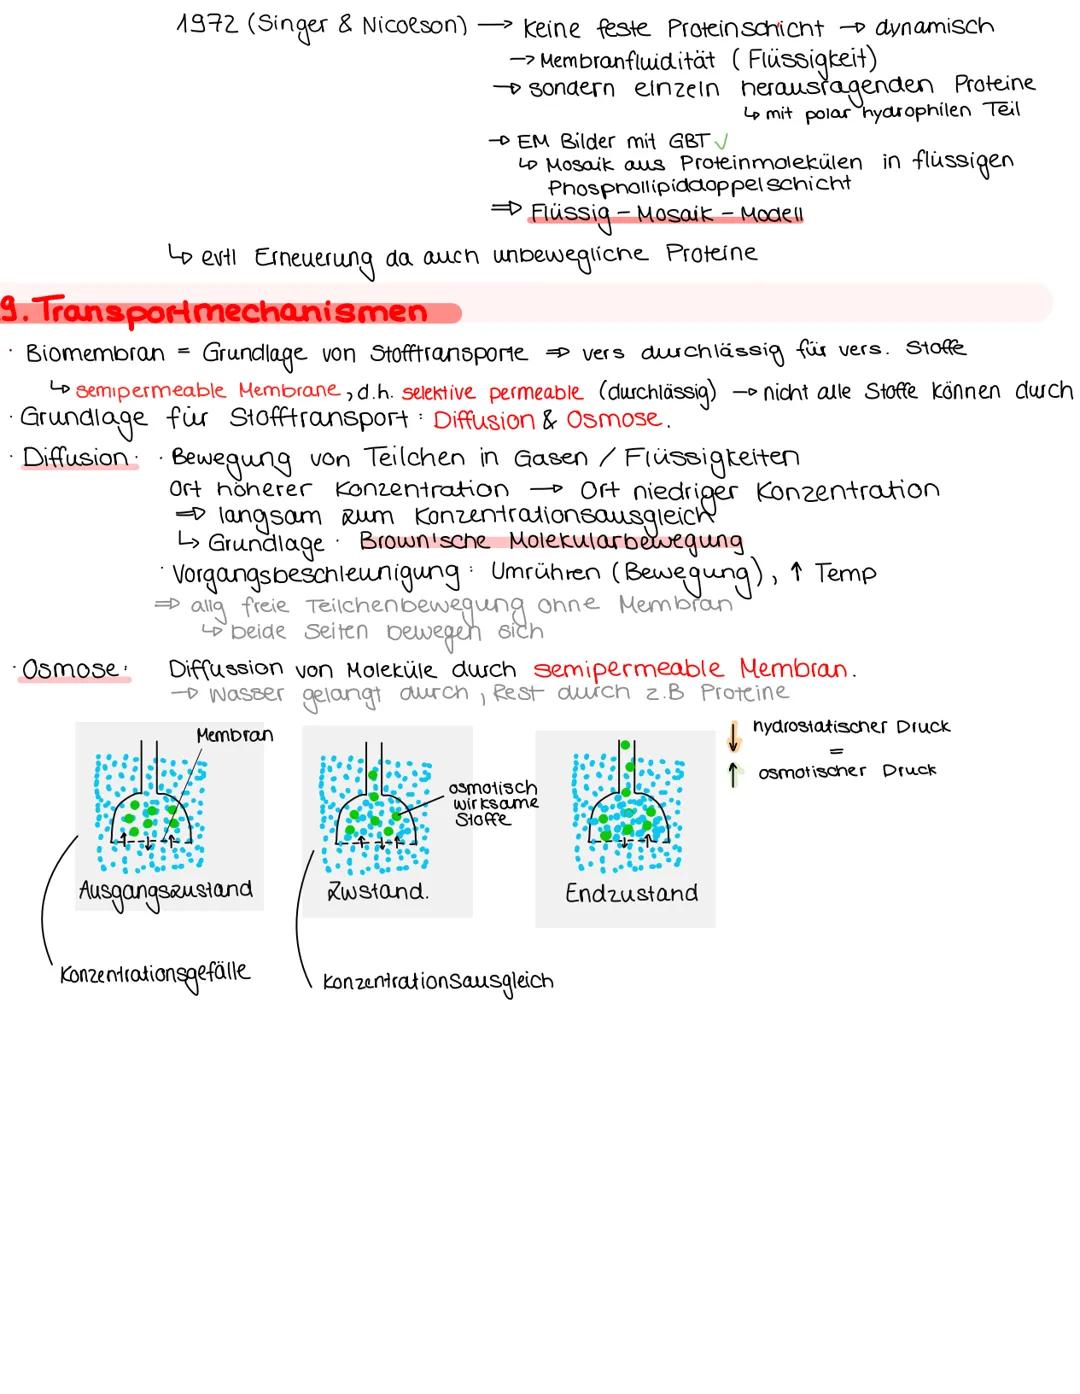 1972 (Singer & Nicolson) → keine feste Proteinschicht → dynamisch
→ Membranfluidität (Flüssigkeit)
→ sondern einzeln herausragenden Proteine
↳ mit polar hydrophilen Teil
→ EM Bilder mit GBT ✓
↳ Mosaik aus Proteinmolekülen in flüssigen
Phosphollipiddoppelschicht
⇒ Flüssig-Mosaik-Modell
↳ evtl Erneuerung da auch unbewegliche Proteine
9. Transportmechanismen
· Biomembran = Grundlage von Stofftransporte ⇒ vers durchlässig für vers. Stoffe
↳ semipermeable Membrane, d.h. selektive permeable (durchlässig) → nicht alle Stoffe können durch
· Grundlage für Stofftransport: Diffusion & Osmose.
· Diffusion: · Bewegung von Teilchen in Gasen / Flüssigkeiten
Ort höherer Konzentration → Ort niedriger Konzentration
⇒ langsam zum Konzentrationsausgleich
↳ Grundlage: Brown'sche Molekularbewegung
· Vorgangsbeschleunigung: Umrühren (Bewegung), ↑ Temp
⇒ allg freie Teilchenbewegung ohne Membran
↳ beide Seiten bewegen sich
· Osmose: Diffussion von Moleküle durch semipermeable Membran.
→ Wasser gelangt durch, Rest durch z.B Proteine
Membran
↓ hydrostatischer Druck
=
↑ osmotischer Druck
osmotisch
wirksame
Stoffe
Ausgangszustand
Zwstand.
Endzustand
Konzentrationsgefälle
Konzentrationsausgleich